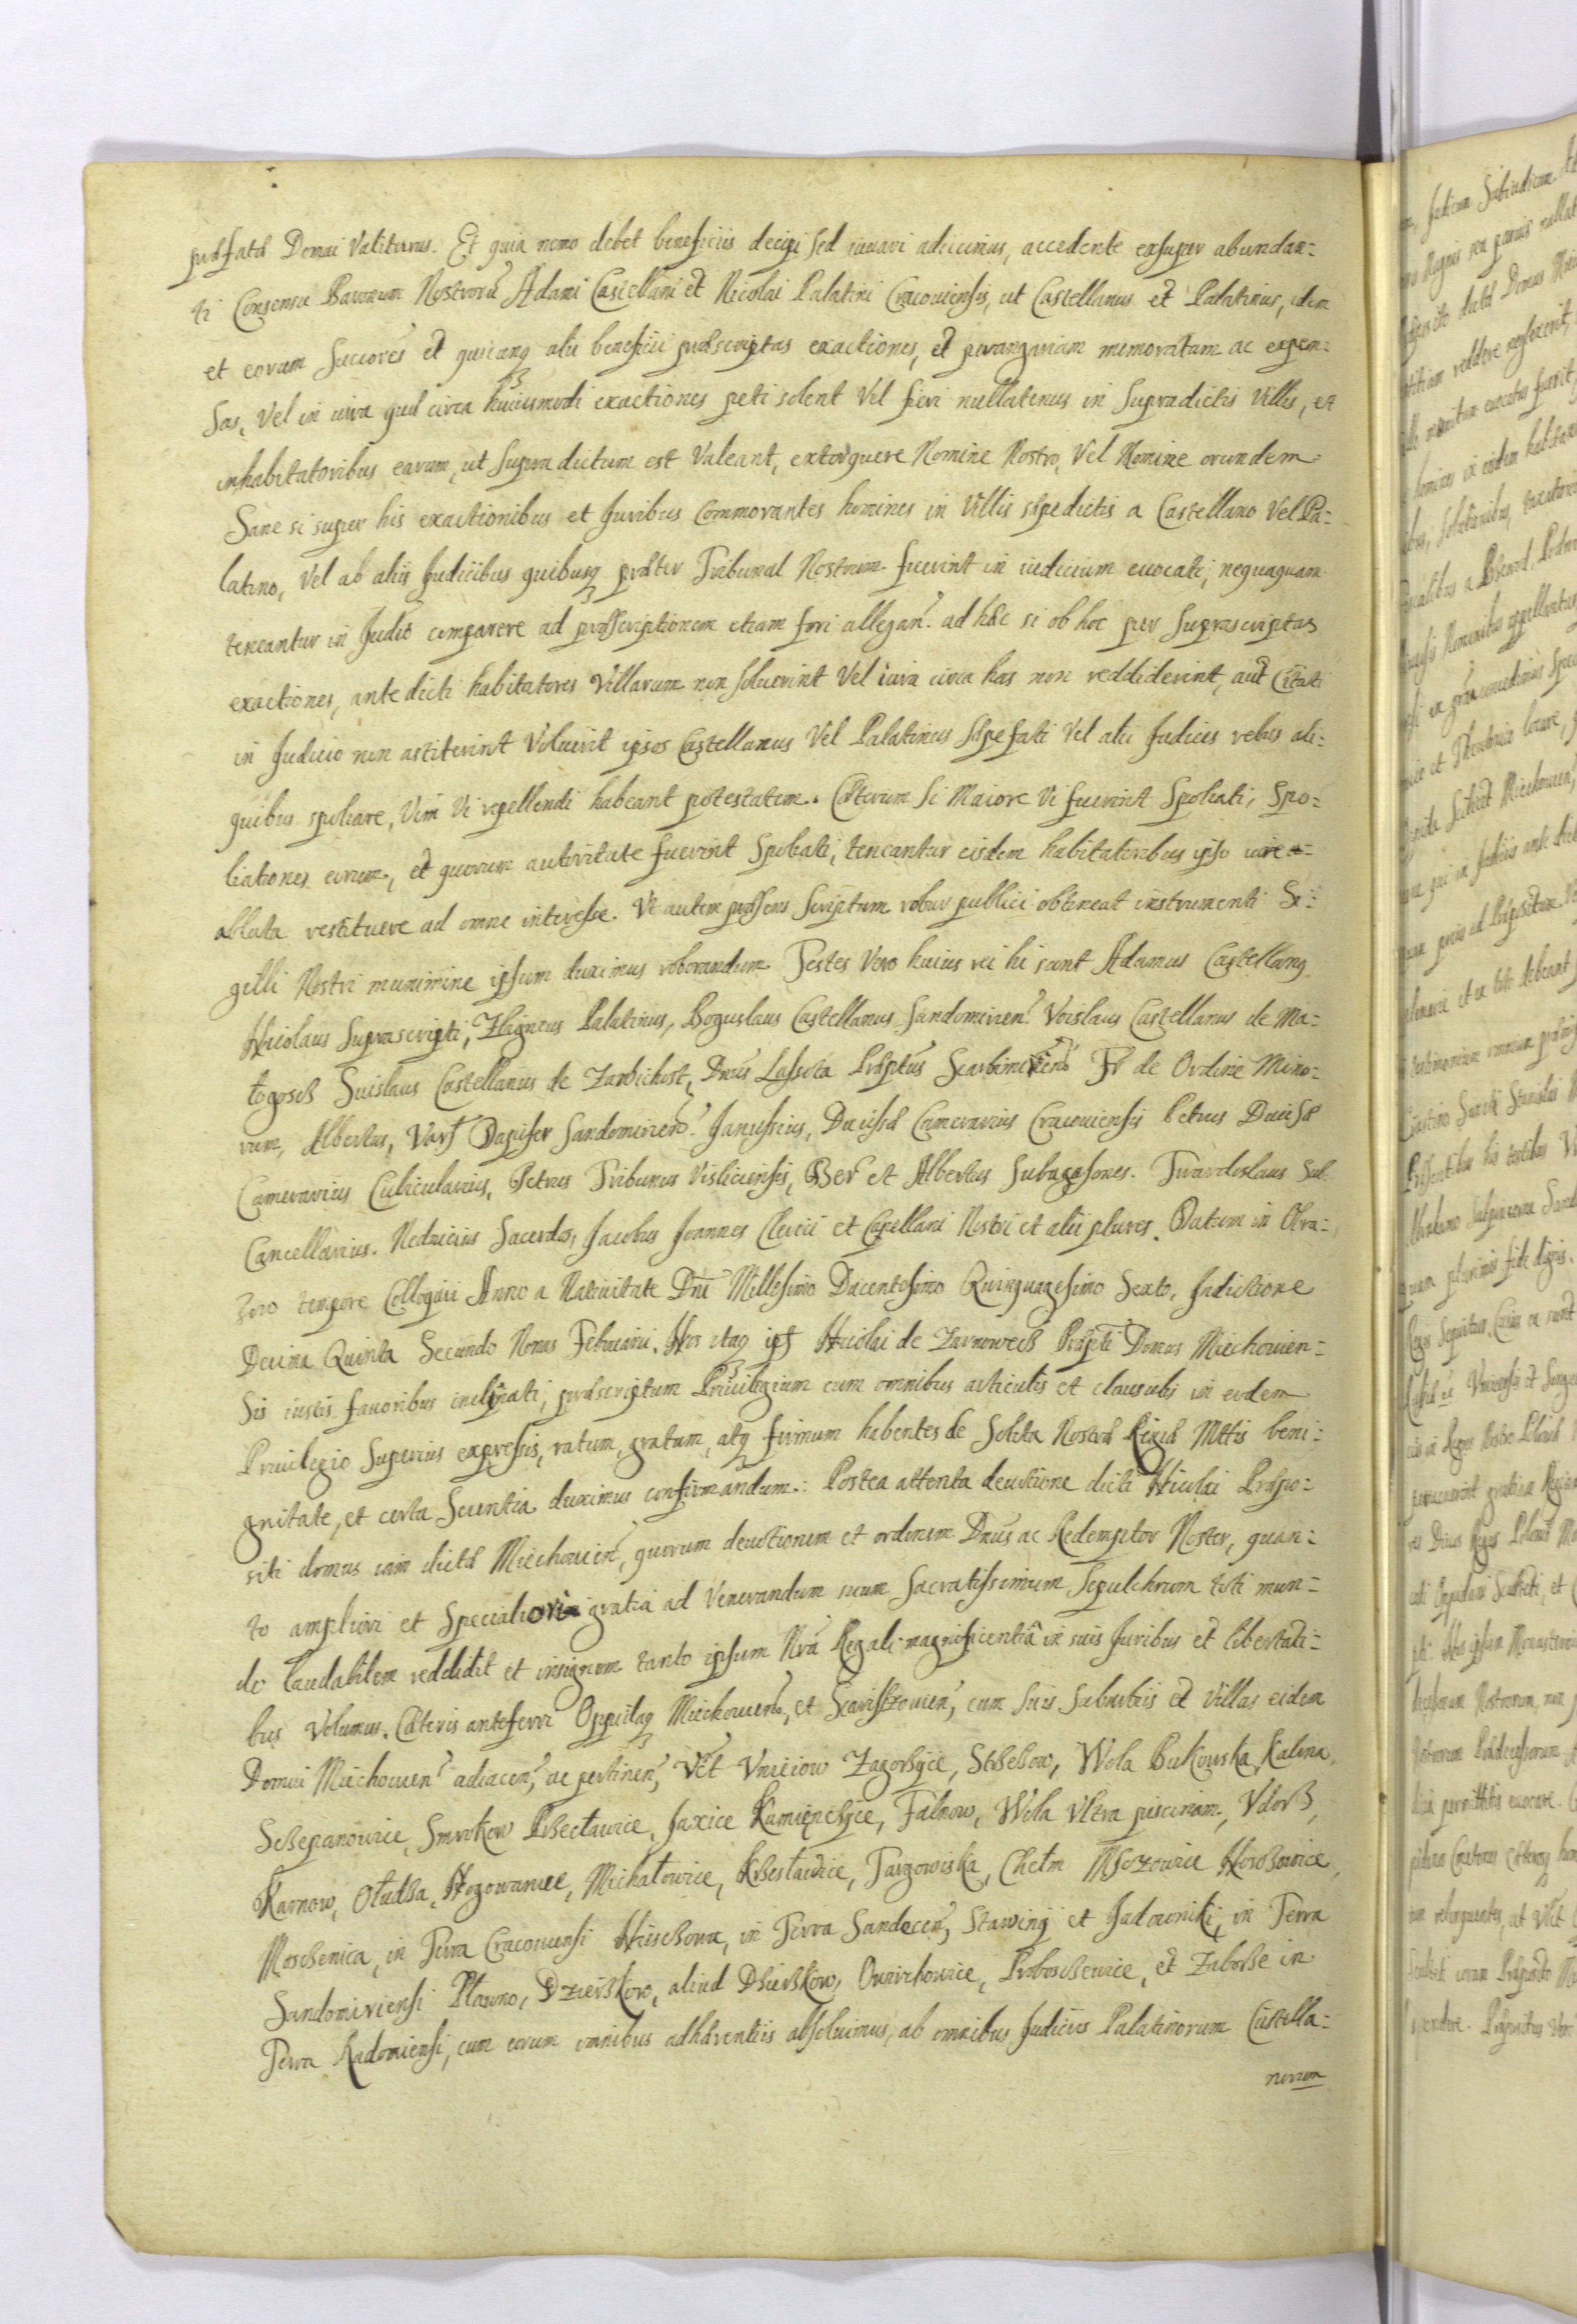 præfatæ Domui Valiturus. Et quia nemo debet beneficiis decipi sed iuuari adiicimus, accedente exsuper abundan=
ti Consensu Baronum Nostroru Adami Castellani et Nicolai Palatini Cracouiensis, ut Castellanus et Palatinus, idem
et eorum succores et quicunq alii beneficii præscriptas exactiones, et perangariam memoratam ac expen=
sas, Vel in iura quæ circa huiusmodi exactiones peti solent Vel fieri nullatenus in Supradictis Villis, et
inhabitatoribus earum, ut supra dictum est Valeant, extorquere Nomine Nostro, Vel Nomine eorundem
Sane si super his exactionibus et Iuribus Commorantes homines in Villis sæpedictis a Castellano Vel Pa=
latino, Vel ab aliis Iudicibus quibusq præter Tribunal Nostrum fuerint in iudicium euocati, nequaquam
teneantur in Judio comparere ad præscriptionem etiam fori allegan. ad hæc si ob hoc per Suprascriptas
exactiones, ante dicti habitatores Villarum non soluerint Vel iura circa has non reddiderint, aut Citati
in Iudicio non astiterint Voluerit ipsos Castellanus Vel Palatinus sæpefati Vel alii Iudices rebus ali=
quibus spoliare, Vim Vi repellendi habeant potestatem. Cæterum si Maiore Vi fuerint Spoliati, Spo=
liationes eorum, et quorum autoritate fuerint Spoliati, teneantur eisdem habitatoribus ipso iure
ablata restituere ad omne interesse. Vt autem præsens Scriptum robur publici obtineat instrumenti Si=
gilli Nostri munimine ipsum duximus roborandum. Testes Vero huius rei hi sunt Adamus Castellanq
Nicolaus Suprascripti, Zegneus Palatinus, Boguslaus Castellanus Sandomirien. Voislaus Castellanus de Ma=
togosch Suislaus Castellanus de Zawichost, Dnus Lassota Præptus Scarbimirien Fr de Ordine Mino=
rum, Albertus, Dapifer Sandomirien. Janussius, Duissæ Camerarius Cracouiensis Petrus Duissæ
Camerarius Cubicularius, Petrus Tribunus Visliciensis, Ber et Albertus Subagasones. Twardoslaus Sub
Cancellarius. Sacerdos, Jacobus Joannes Clerici et Capellani Nostri et alii plures. Datum in Obra=
zow tempore Colloquii Anno a Natiuitate Dni Millesimo Ducentesimo Quinquagesimo Sexto, Indictione
Decima Quinta Secundo Nonas Februarii. Nos itaq Nicolai de Zarnowech Præpti Domus Miechouien=
sis iustis fauoribus inclinati, præscriptum Priuilegium cum omnibus articulis et clausulis in eodem
Priuilegio Superius expressis, ratum, gratum, atq firmum habentes de Solita Nostræ Regiæ Mttis beni=
gnitate, et certa Scientia duximus confirmandum. Postea attenta deuotione dicti Nicolai Præpo=
siti domus iam dictæ Miechouien, quorum deuotionem et ordinem Dnus ac Redemptor Noster, quan=
to ampliori et Specialiori gratia ad Venerandum suum Sacratissimum Sepulchrum toti mun=
do laudabilem reddidit et insignem tanto ipsum Nra Regali magnificentia in suis Iuribus et libertati=
bus Volumus. Cæteris anteferri Oppidaq Miechouien, et Skariszouien, cum suis suburbiis et Villas eidem
Domui Miechouien adiacen, ac pertinen, Vłt Vnieiow Zagorzyce, Strzezow, Wola Bukowska, Kalina,
Sczepanowice, Smrokow Przecławice, Jaxice Kamięnczyce, Falnow, Wola Vltra piscinam, Vdorz,
Karnow, Oludza, Nogowanice, Michałowice, Krzesławice, Targowiska, Chełm Mszowice,
Moschenica, in Terra Cracouiensi in Terra Sandecen, et Iadowniki, in Terra
Sandomiriensi Pławno, Dzierzkow, aliud Dzierzkow, Proboszczewice, et Zaborze in
Terra Radomiensi, cum eorum omnibus adhærentiis absoluimus, ab omnibus Iudiciis Palatinorum Castella=
norum